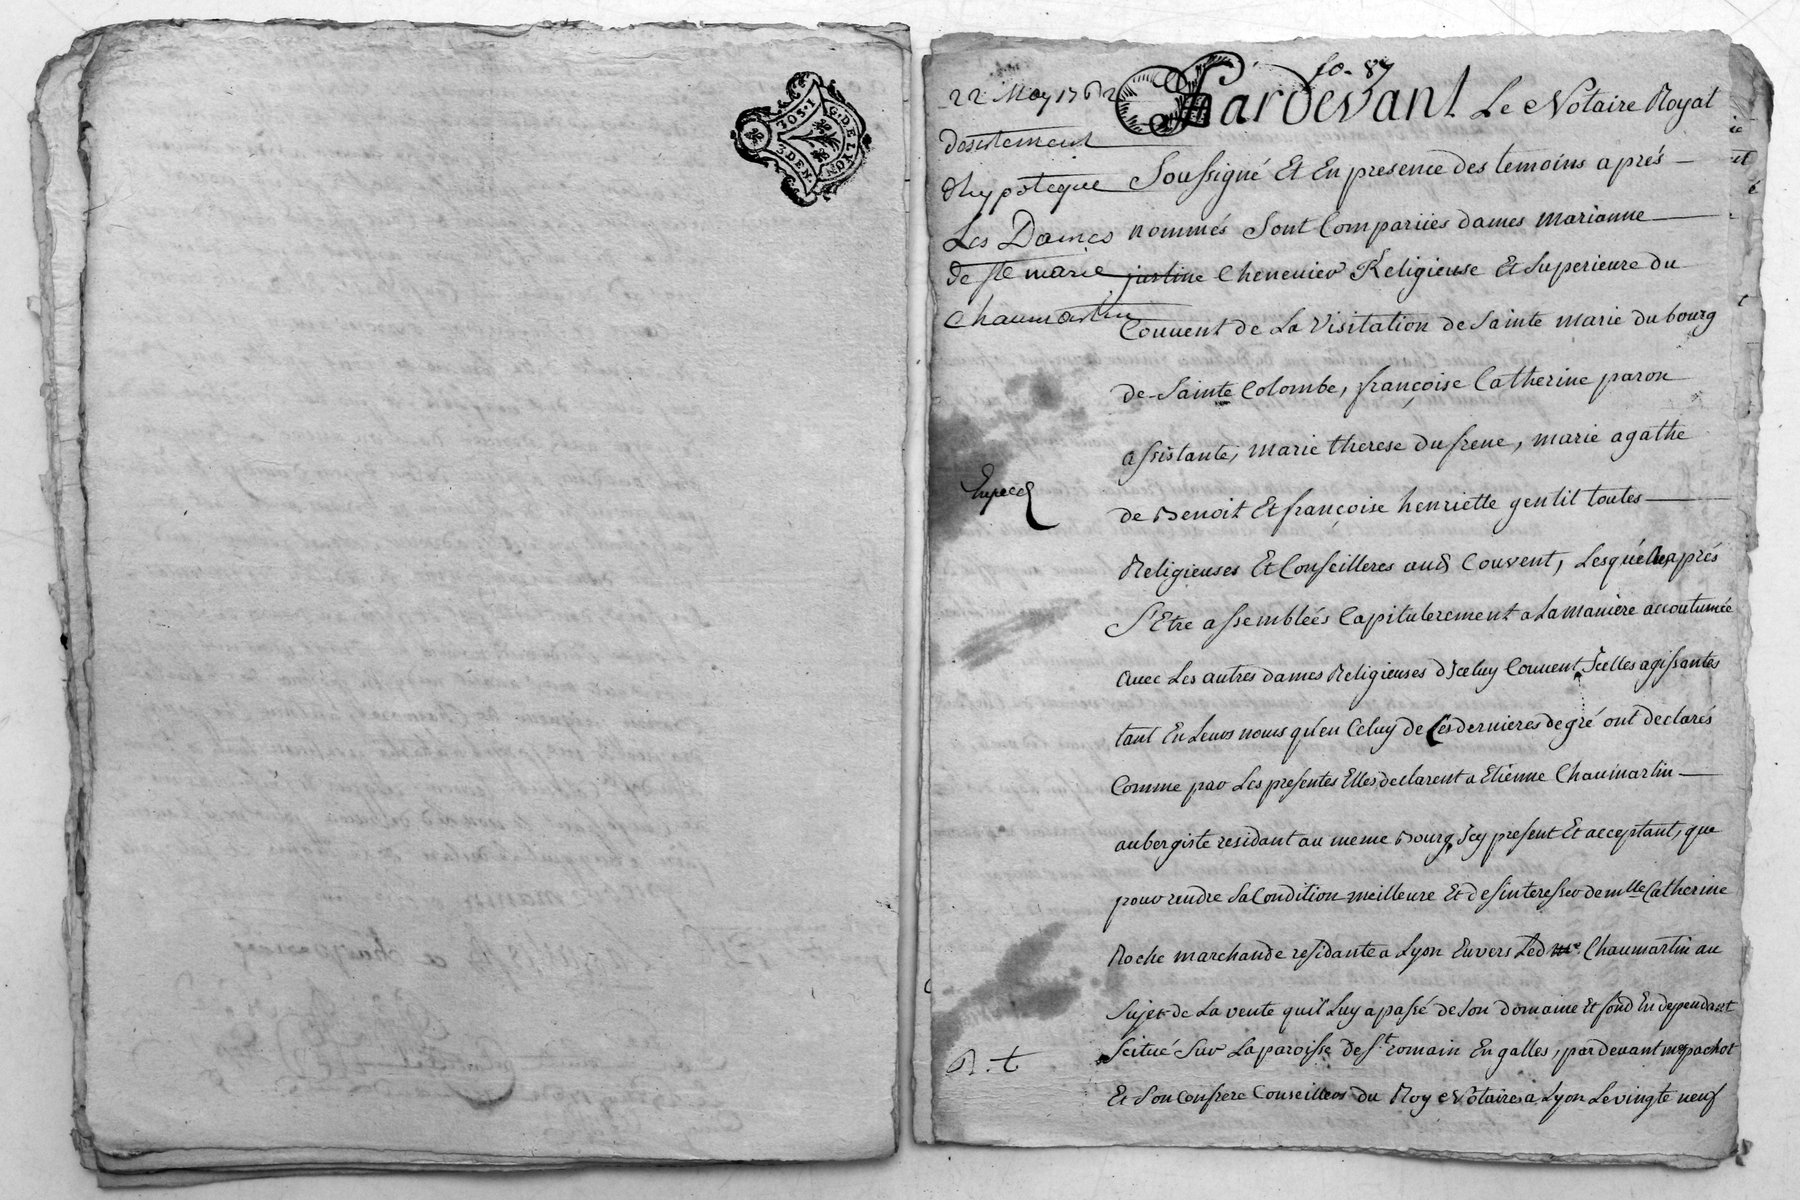 G. DE LYON
3 DEN.
fo. 87
22 May 1762
desistement
dhypoteque
Les Dames
de Ste marie
Chaumartin
Expeed
R. t
Pardevant Le Notaire Royal
Soussigné Et En presence des temoins aprés
nommés Sont Compariies dames marianne
justine Chenevier Religieuse Et Superieure du
Couvent de La Visitation de Sainte marie du bourg
de Sainte Colombe, françoise Catherine paron
assistante, marie therese dufrene, marie agathe
de Benoit Et françoise henriette gentil toutes
Religieuses Et Conseilleres aud Couvent, Lesquélles aprés
S'Etre assembléés Capitulerement a La maniere accoutumée
avec Les autres dames Religieuses d'Jceluy Couvent Jcelles agissantes
tant En Leurs noms qu'en Celuy de Ces dernieres de gré ont declarés
Comme par Les presentes Elles declarent a Etienne Chaumartin
aubergiste residant au meme Bourg Jcy present Et acceptant, que
pour rendre Sa Condition meilleure Et desinteresser de mlle Catherine
Roche marchande residante a Lyon Envers Led me. Chaumartin au
Sujet de La vente quil Luy a passé de Son domaine Et fond En dependant
Scitué Sur La paroisse de St romain En galles, pardevant me pachot
Et Son Confrere Conseillers du Roy Notaires a Lyon Le vingte neuf